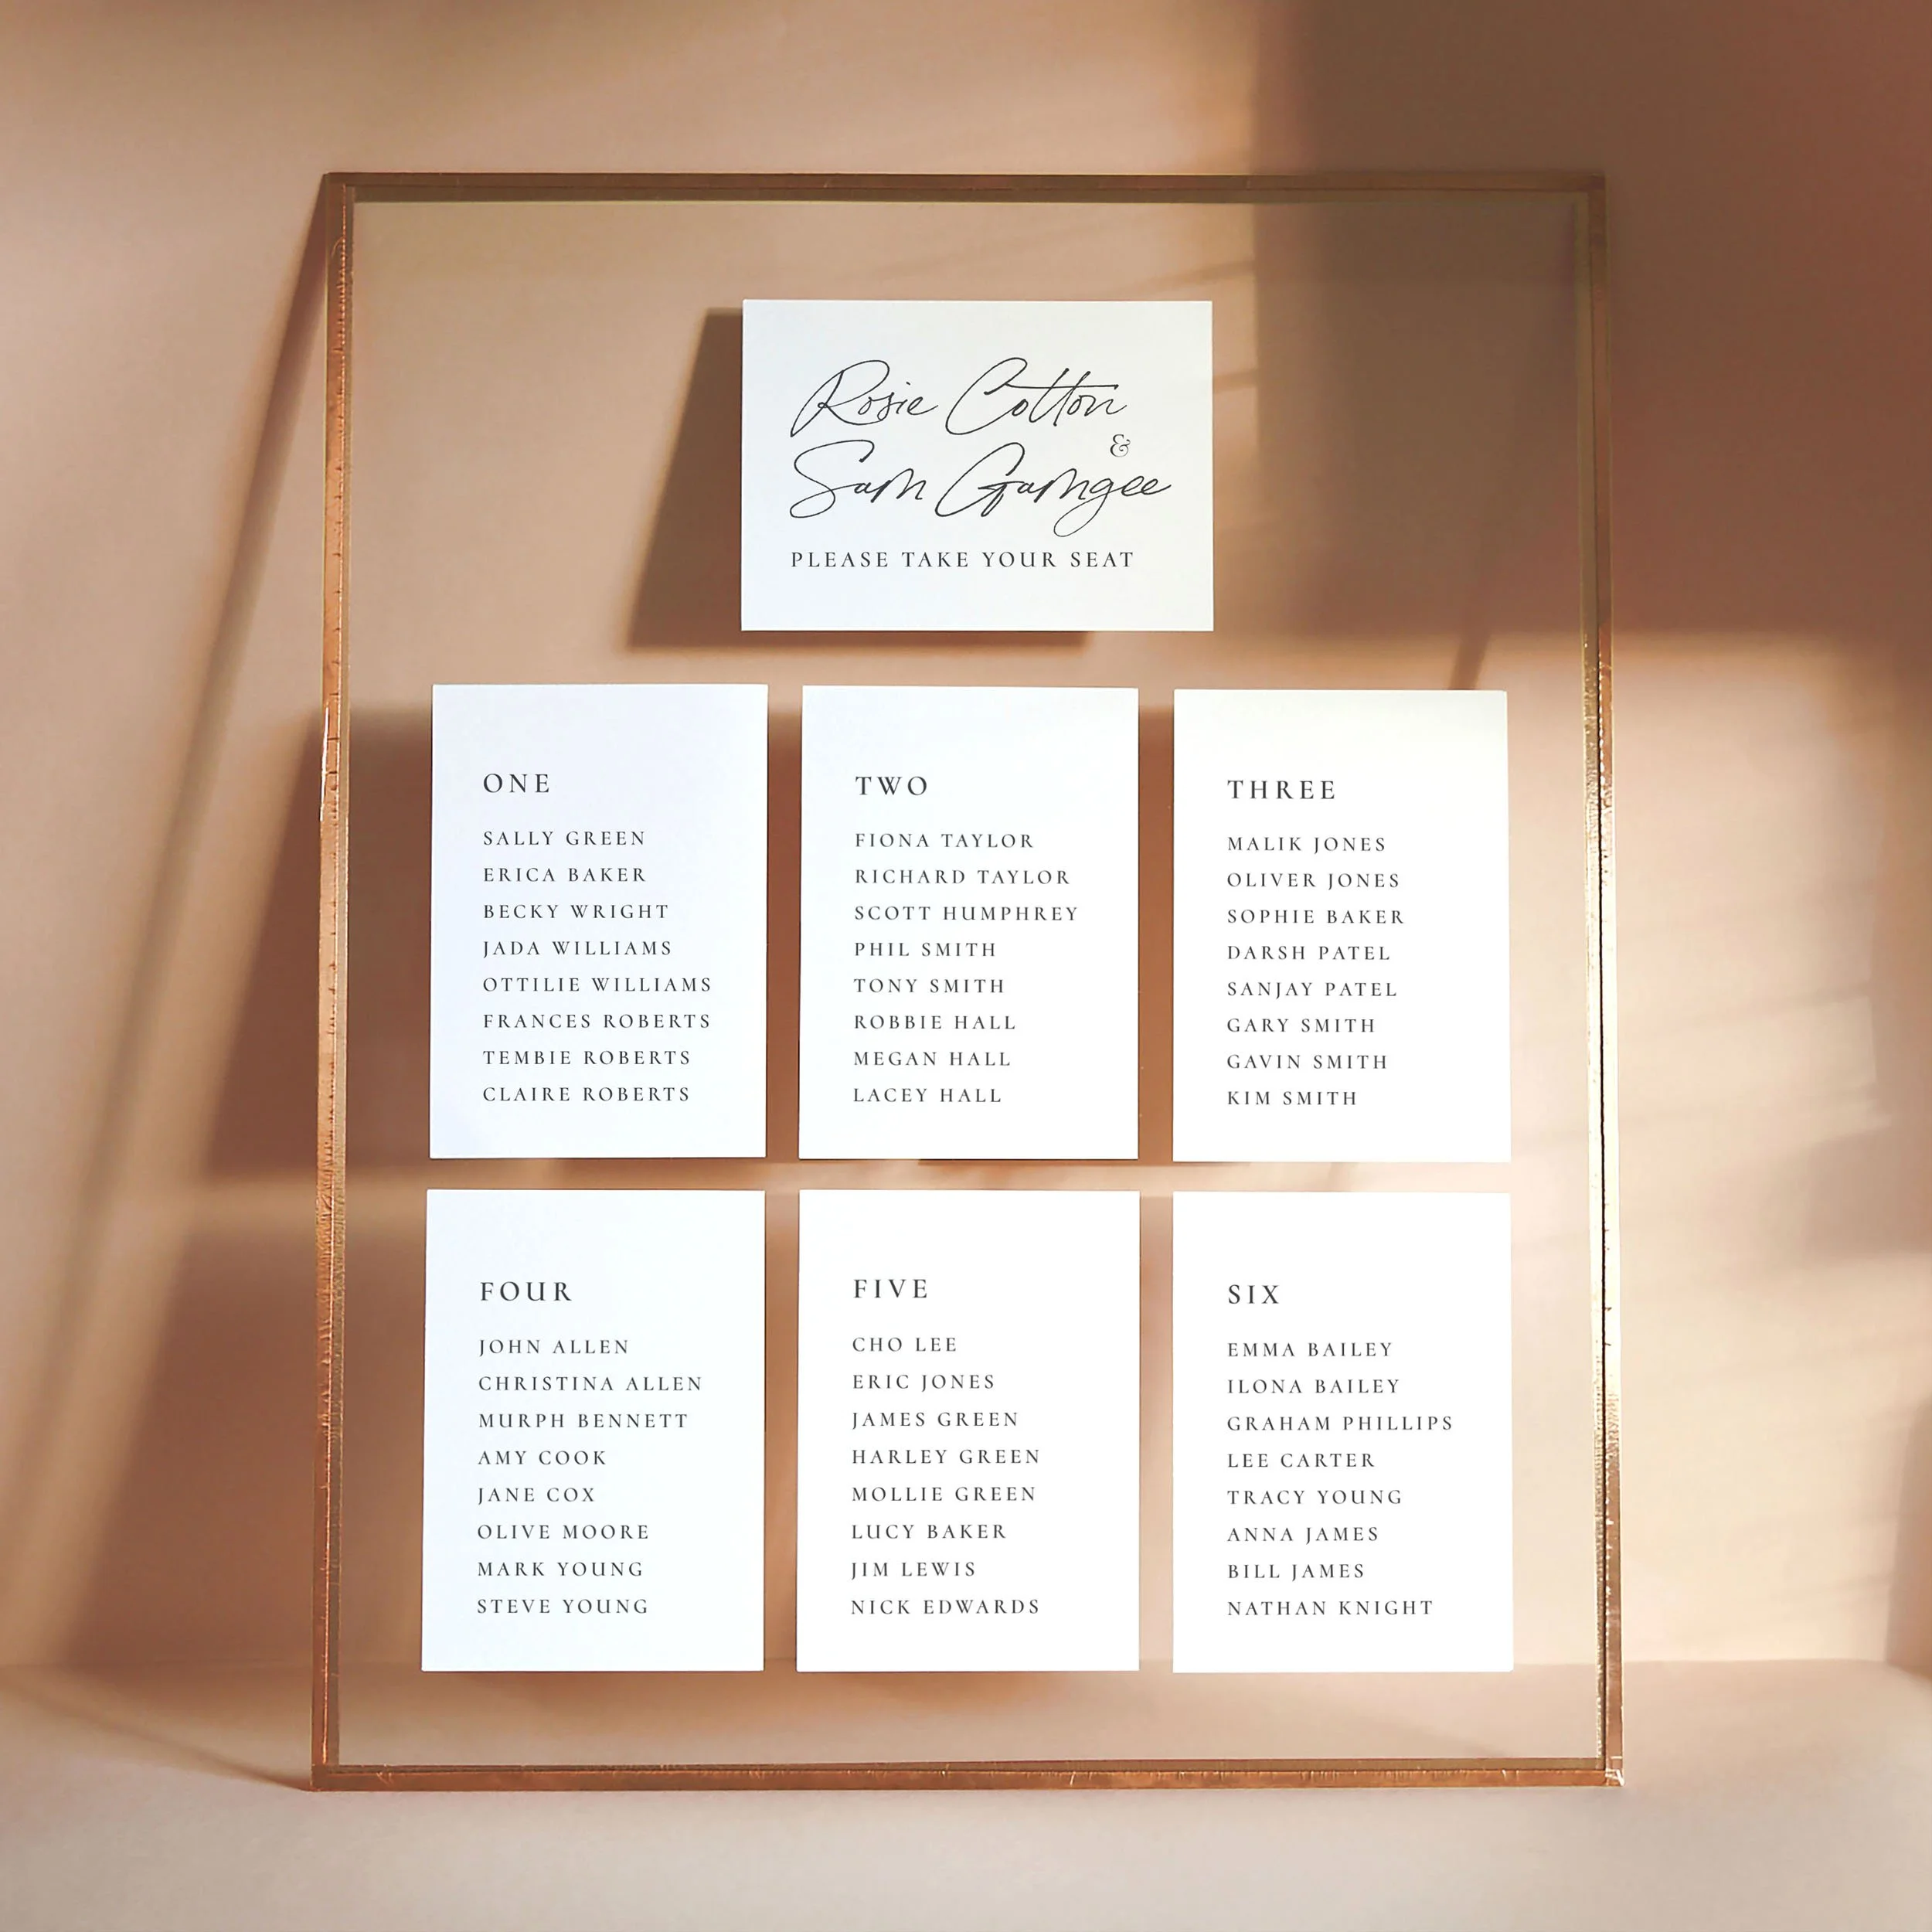 Rosie Cotton
&
Sam Gamgee
PLEASE TAKE YOUR SEAT
ONE
SALLY GREEN
ERICA BAKER
BECKY WRIGHT
JADA WILLIAMS
OTTILIE WILLIAMS
FRANCES ROBERTS
TEMBIE ROBERTS
CLAIRE ROBERTS
TWO
FIONA TAYLOR
RICHARD TAYLOR
SCOTT HUMPHREY
PHIL SMITH
TONY SMITH
ROBBIE HALL
MEGAN HALL
LACEY HALL
THREE
MALIK JONES
OLIVER JONES
SOPHIE BAKER
DARSH PATEL
SANJAY PATEL
GARY SMITH
GAVIN SMITH
KIM SMITH
FOUR
JOHN ALLEN
CHRISTINA ALLEN
MURPH BENNETT
AMY COOK
JANE COX
OLIVE MOORE
MARK YOUNG
STEVE YOUNG
FIVE
CHO LEE
ERIC JONES
JAMES GREEN
HARLEY GREEN
MOLLIE GREEN
LUCY BAKER
JIM LEWIS
NICK EDWARDS
SIX
EMMA BAILEY
ILONA BAILEY
GRAHAM PHILLIPS
LEE CARTER
TRACY YOUNG
ANNA JAMES
BILL JAMES
NATHAN KNIGHT